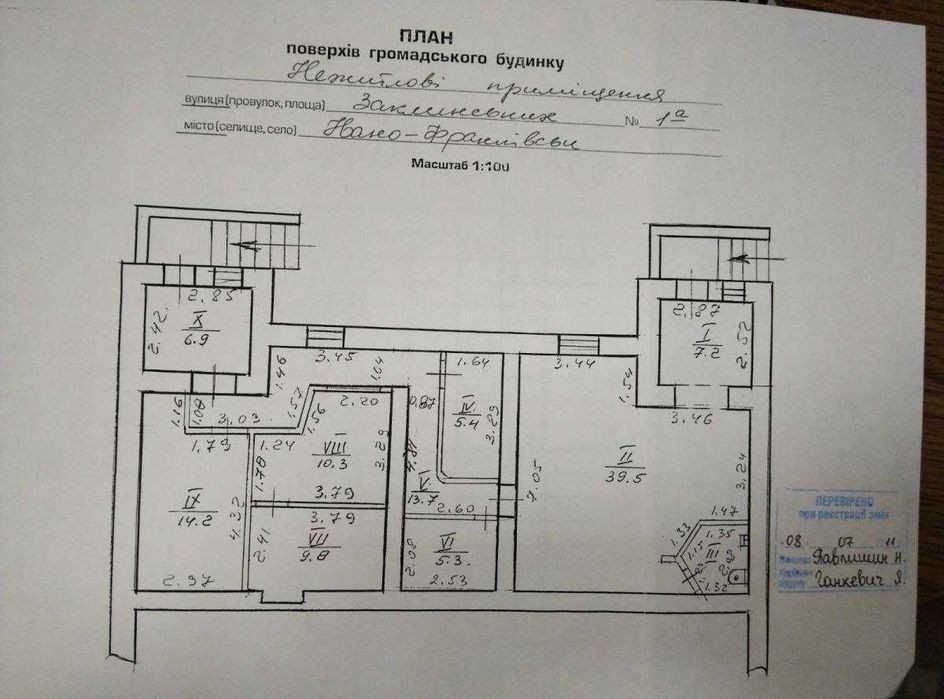 ПЛАН
поверхів громадського будинку
Нежитлові приміщення
вулиця (провулок, площа) Заклинських № 1а
місто (селище, село) Івано-Франківськ
Масштаб 1:100
2.85
2.42
X
6.9
2.87
I
7.2
2.52
3.45
1.46
1.04
1.64
3.44
1.54
3.46
1.16
1.08
3.03
1.57
1.56
2.20
0.87
IV
5.4
3.29
1.79
1.24
VIII
10.3
3.29
4.81
II
39.5
7.05
3.24
1.78
3.79
V
13.7
2.60
IX
14.2
4.32
2.41
3.79
VII
9.8
2.08
VI
5.3
2.53
2.37
1.47
1.33
1.35
1.15
III
1.32
ПЕРЕВІРЕНО
при реєстрації змін
08 07 11
Павлишин Н.
Ганкевич Я.